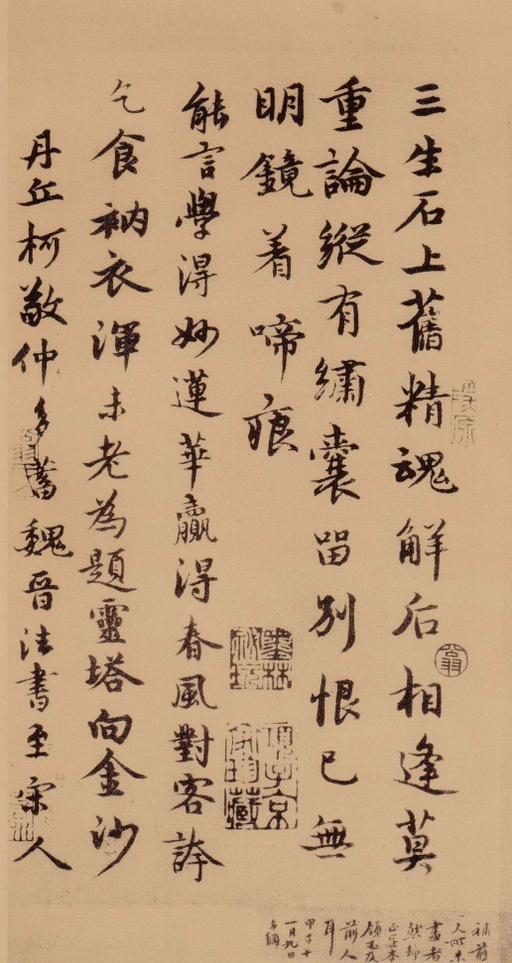 三生石上舊精魂解后相逢莫
重論縱有繡囊留別恨已無
明鏡着啼痕
能言學得妙蓮華贏得春風對客誇
乞食衲衣渾未老為題靈塔向金沙
丹丘柯敬仲多蓄魏晉法書至宋人